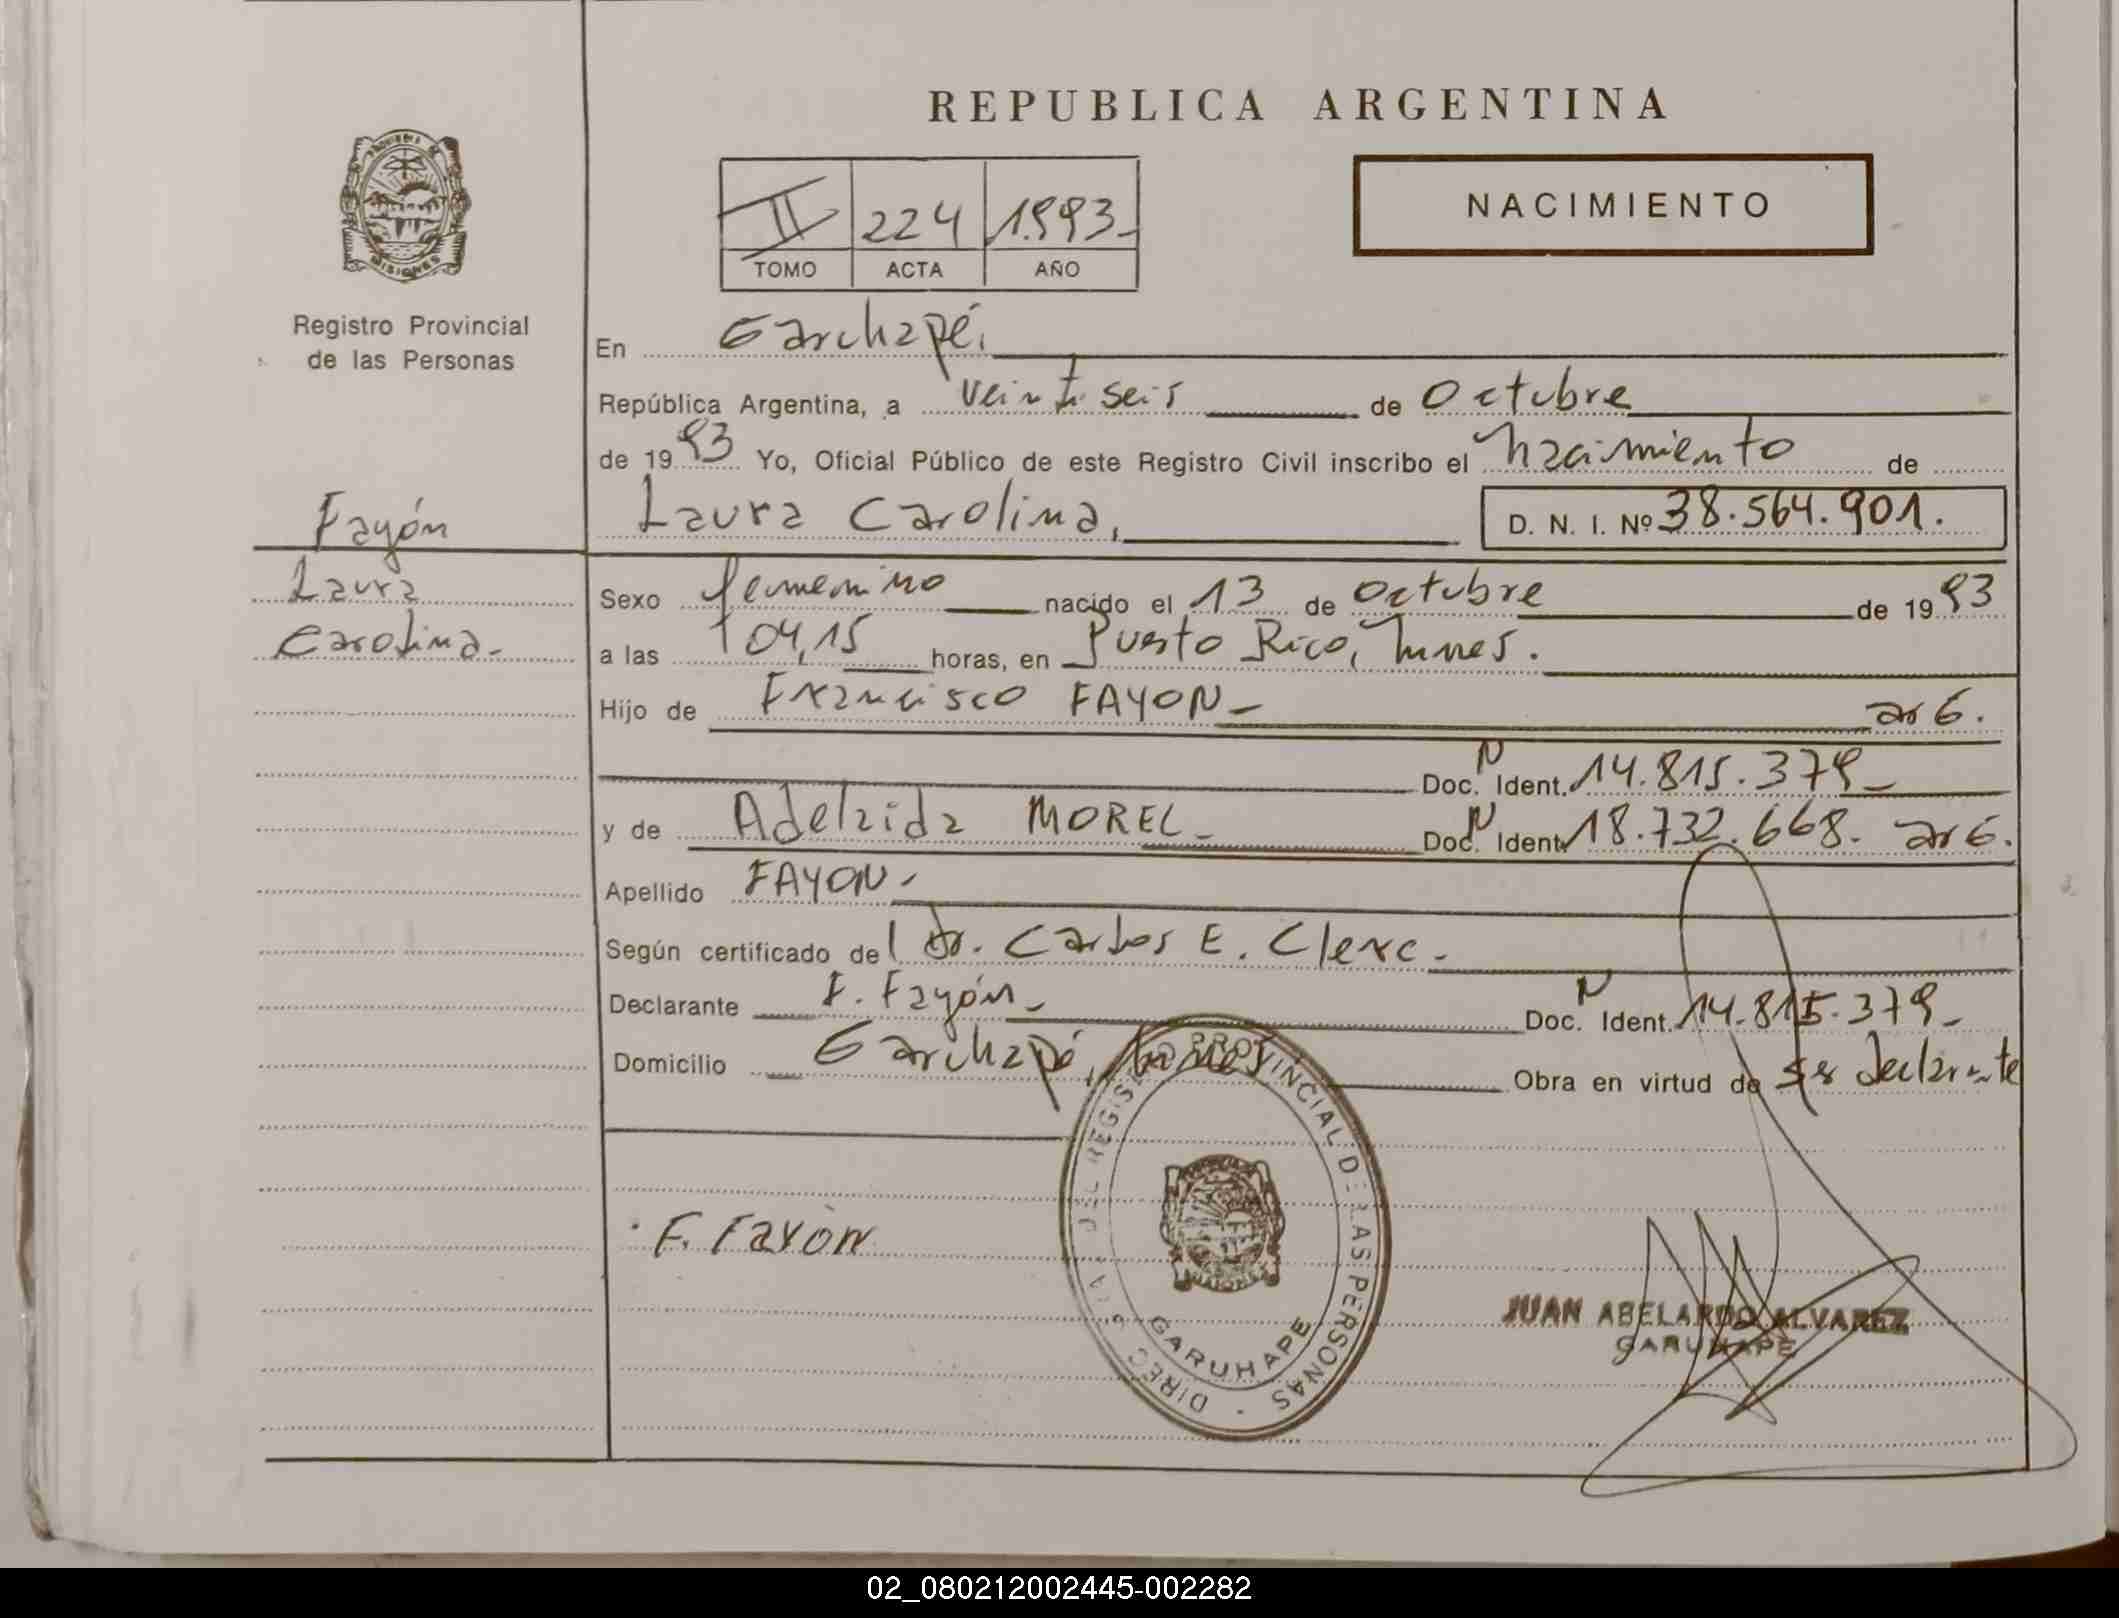 REPUBLICA ARGENTINA
PROVINCIA DE
MISIONES
II 224 1.993-
TOMO ACTA AÑO
NACIMIENTO
Registro Provincial
de las Personas
En Garuhapé,
República Argentina, a veintiseis de Octubre
de 1993 Yo, Oficial Público de este Registro Civil inscribo el nacimiento de
Laura Carolina, D. N. I. Nº 38.564.901.
Fayón
Laura
Carolina-
Sexo femenino nacido el 13 de Octubre de 1993
a las 04,15 horas, en Puerto Rico, Mnes.
Hijo de Francisco FAYON- arg.
Doc. N Ident. 14.815.379-
y de Adelaida MOREL- Doc. N Ident. 18.732.668. arg.
Apellido FAYON-
Según certificado del Dr. Carlos E. Clerc-
Declarante F. Fayón- Doc. N Ident. 14.815.379-
Domicilio Garuhapé, Mnes Obra en virtud de ser declarante
F. Fayòn
DEL REGISTRO PROVINCIAL DE LAS PERSONAS
MISIONES
GARUHAPE
JUAN ABELARDO ALVAREZ
GARUHAPE
02_080212002445-002282